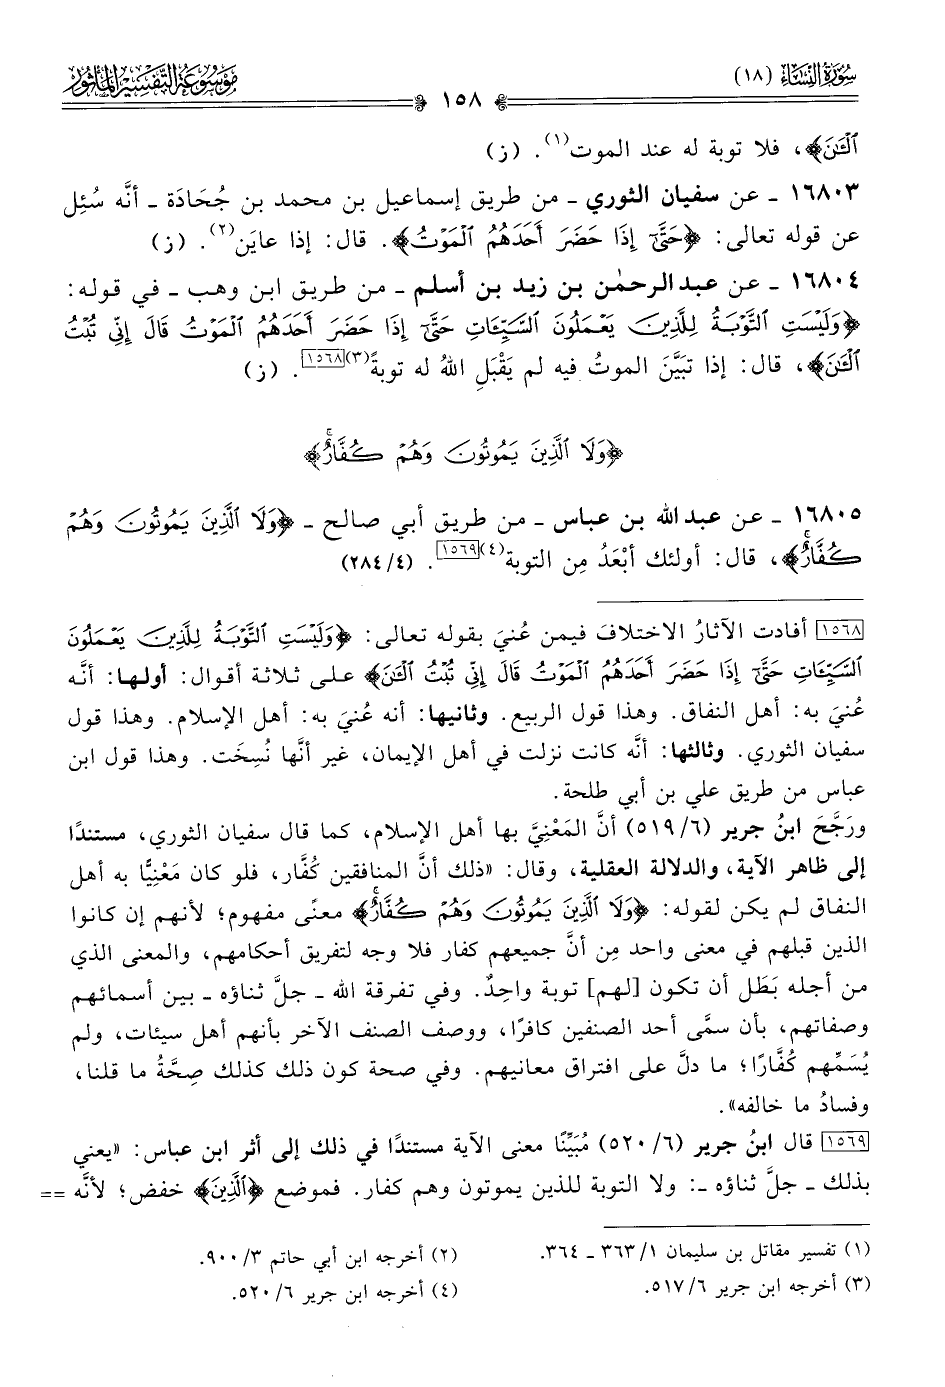 سُورَةُ النِّسَاء (١٨)
١٥٨
مَوْسُوعَة التَّفْسِيرِ المَأْثُور
ٱلْـَٰٔنَ﴾، فلا توبة له عند الموت(١). (ز)
١٦٨٠٣ ـ عن سفيان الثوري ـ من طريق إسماعيل بن محمد بن جُحَادَة ـ أنَّه سُئِل
عن قوله تعالى: ﴿حَتَّىٰٓ إِذَا حَضَرَ أَحَدَهُمُ ٱلْمَوْتُ﴾. قال: إذا عايَن(٢). (ز)
١٦٨٠٤ ـ عن عبد الرحمٰن بن زيد بن أسلم ـ من طريق ابن وهب ـ في قوله:
﴿وَلَيْسَتِ ٱلتَّوْبَةُ لِلَّذِينَ يَعْمَلُونَ ٱلسَّيِّـَٔاتِ حَتَّىٰٓ إِذَا حَضَرَ أَحَدَهُمُ ٱلْمَوْتُ قَالَ إِنِّى تُبْتُ
ٱلْـَٰٔنَ﴾، قال: إذا تبَيَّنَ الموتُ فيه لم يَقْبَلِ اللهُ له توبةً(٣)[١٥٦٨]. (ز)
﴿وَلَا ٱلَّذِينَ يَمُوتُونَ وَهُمْ كُفَّارٌۚ﴾
١٦٨٠٥ ـ عن عبد الله بن عباس ـ من طريق أبي صالح ـ ﴿وَلَا ٱلَّذِينَ يَمُوتُونَ وَهُمْ
كُفَّارٌۚ﴾، قال: أولئك أبْعَدُ مِن التوبة(٤)[١٥٦٩]. (٢٨٤/٤)
[١٥٦٨] أفادت الآثارُ الاختلافَ فيمن عُنيَ بقوله تعالى: ﴿وَلَيْسَتِ ٱلتَّوْبَةُ لِلَّذِينَ يَعْمَلُونَ
ٱلسَّيِّـَٔاتِ حَتَّىٰٓ إِذَا حَضَرَ أَحَدَهُمُ ٱلْمَوْتُ قَالَ إِنِّى تُبْتُ ٱلْـَٰٔنَ﴾ على ثلاثة أقوال: أولها: أنَّه
عُنيَ به: أهل النفاق. وهذا قول الربيع. وثانيها: أنه عُنيَ به: أهل الإسلام. وهذا قول
سفيان الثوري. وثالثها: أنَّه كانت نزلت في أهل الإيمان، غير أنَّها نُسِخَت. وهذا قول ابن
عباس من طريق علي بن أبي طلحة.
ورَجَّحَ ابنُ جرير (٥١٩/٦) أنَّ المَعْنِيَّ بها أهل الإسلام، كما قال سفيان الثوري، مستندًا
إلى ظاهر الآية، والدلالة العقلية، وقال: «ذلك أنَّ المنافقين كُفَّار، فلو كان مَعْنِيًّا به أهل
النفاق لم يكن لقوله: ﴿وَلَا ٱلَّذِينَ يَمُوتُونَ وَهُمْ كُفَّارٌۚ﴾ معنًى مفهوم؛ لأنهم إن كانوا
الذين قبلهم في معنى واحد مِن أنَّ جميعهم كفار فلا وجه لتفريق أحكامهم، والمعنى الذي
من أجله بَطَل أن تكون [لهم] توبة واحِدٌ. وفي تفرقة الله ـ جلَّ ثناؤه ـ بين أسمائهم
وصفاتهم، بأن سمَّى أحد الصنفين كافرًا، ووصف الصنف الآخر بأنهم أهل سيئات، ولم
يُسَمِّهم كُفَّارًا؛ ما دلَّ على افتراق معانيهم. وفي صحة كون ذلك كذلك صِحَّةُ ما قلنا،
وفسادُ ما خالفه».
[١٥٦٩] قال ابنُ جرير (٥٢٠/٦) مُبَيِّنًا معنى الآية مستندًا في ذلك إلى أثر ابن عباس: «يعني
بذلك ـ جلَّ ثناؤه ـ: ولا التوبة للذين يموتون وهم كفار. فموضع ﴿ٱلَّذِينَ﴾ خفض؛ لأنَّه ==
(١) تفسير مقاتل بن سليمان ٣٦٣/١ ـ ٣٦٤.
(٢) أخرجه ابن أبي حاتم ٩٠٠/٣.
(٣) أخرجه ابن جرير ٥١٧/٦.
(٤) أخرجه ابن جرير ٥٢٠/٦.